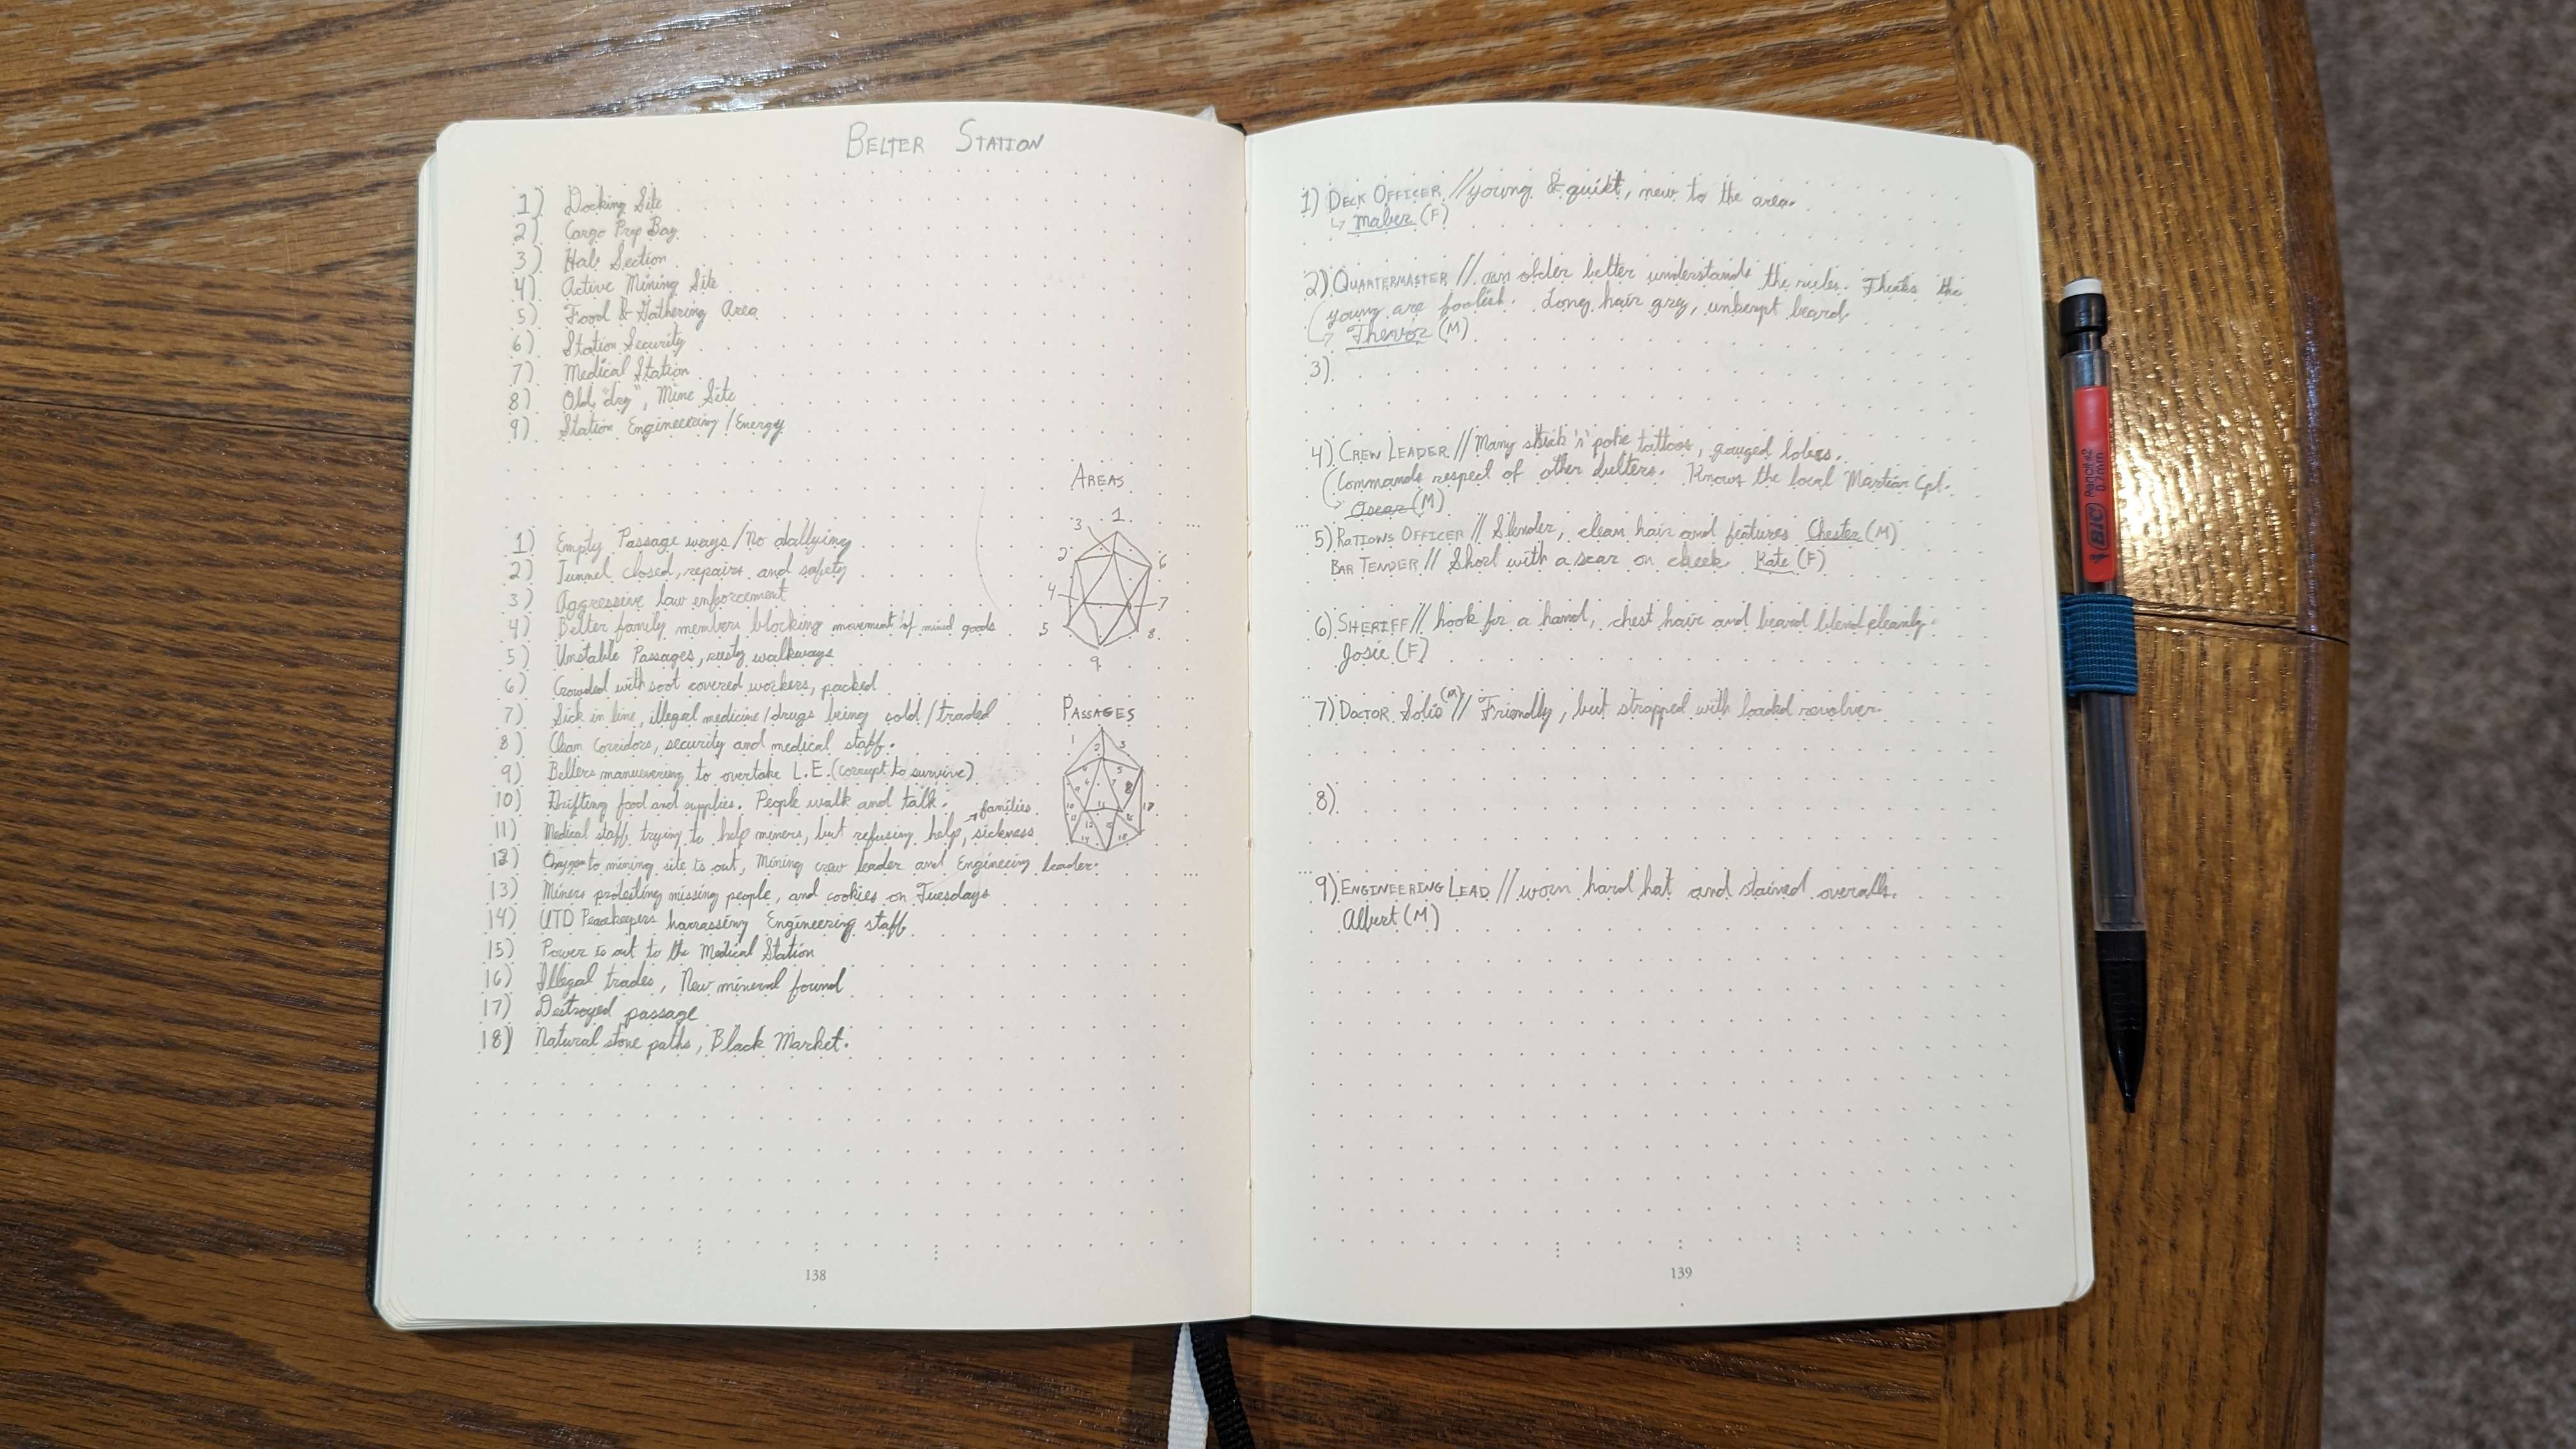 BELTER STATION
1) Docking Site
2) Cargo Prep Bay
3) Hab Section
4) Active Mining Site
5) Food & Gathering Area
6) Station Security
7) Medical Station
8) Old "dry", Mine Site
9) Station Engineering/Energy
AREAS
1
3
2
6
4
7
5
8
9
1) Empty Passage ways/No dallying
2) Tunnel closed, repairs and safety
3) Aggressive law enforcement
4) Belter family members blocking movement of mined goods
5) Unstable Passages, rusty walkways
6) Crowded with soot covered workers, packed
7) Sick in line, illegal medicine/drugs being sold/traded
8) Clean corridors, security and medical staff.
9) Belters manuevering to overtake L.E. (corrupt to survive)
10) Drifting food and supplies. People walk and talk.
→ families
11) Medical staff trying to help miners, but refusing help, sickness
12) Oxygen to mining site is out, Mining crew leader and Engineering leader.
13) Miners protesting missing people, and cookies on Tuesdays
14) UTD Peacekeepers harrassing Engineering staff
15) Power is out to the Medical Station
16) Illegal trades, New mineral found
17) Destroyed passage
18) Natural stone paths, Black Market.
PASSAGES
1 2 3
5
8
11
17
138
1) DECK OFFICER // young & quiet, new to the area.
↳ Maber (F)
2) QUARTERMASTER // an older belter understands the rules. Thinks the
young are foolish. Long hair grey, unkempt beard
Thevor (M)
3)
4) CREW LEADER // Many stick 'n' poke tattoos, gauged lobes.
Commands respect of other bulters. Knows the local Martian Cpl.
Oscar (M)
5) RATIONS OFFICER // Slender, clean hair and features Chester (M)
BAR TENDER // Short with a scar on cheek. Kate (F)
6) SHERIFF // hook for a hand, chest hair and beard blend cleanly.
Josie (F)
7) DOCTOR Solis (M) // Friendly, but strapped with loaded revolver.
8)
9) ENGINEERING LEAD // worn hard hat and stained overalls.
Albert (M)
139
BIC Pencil #2
0.7mm